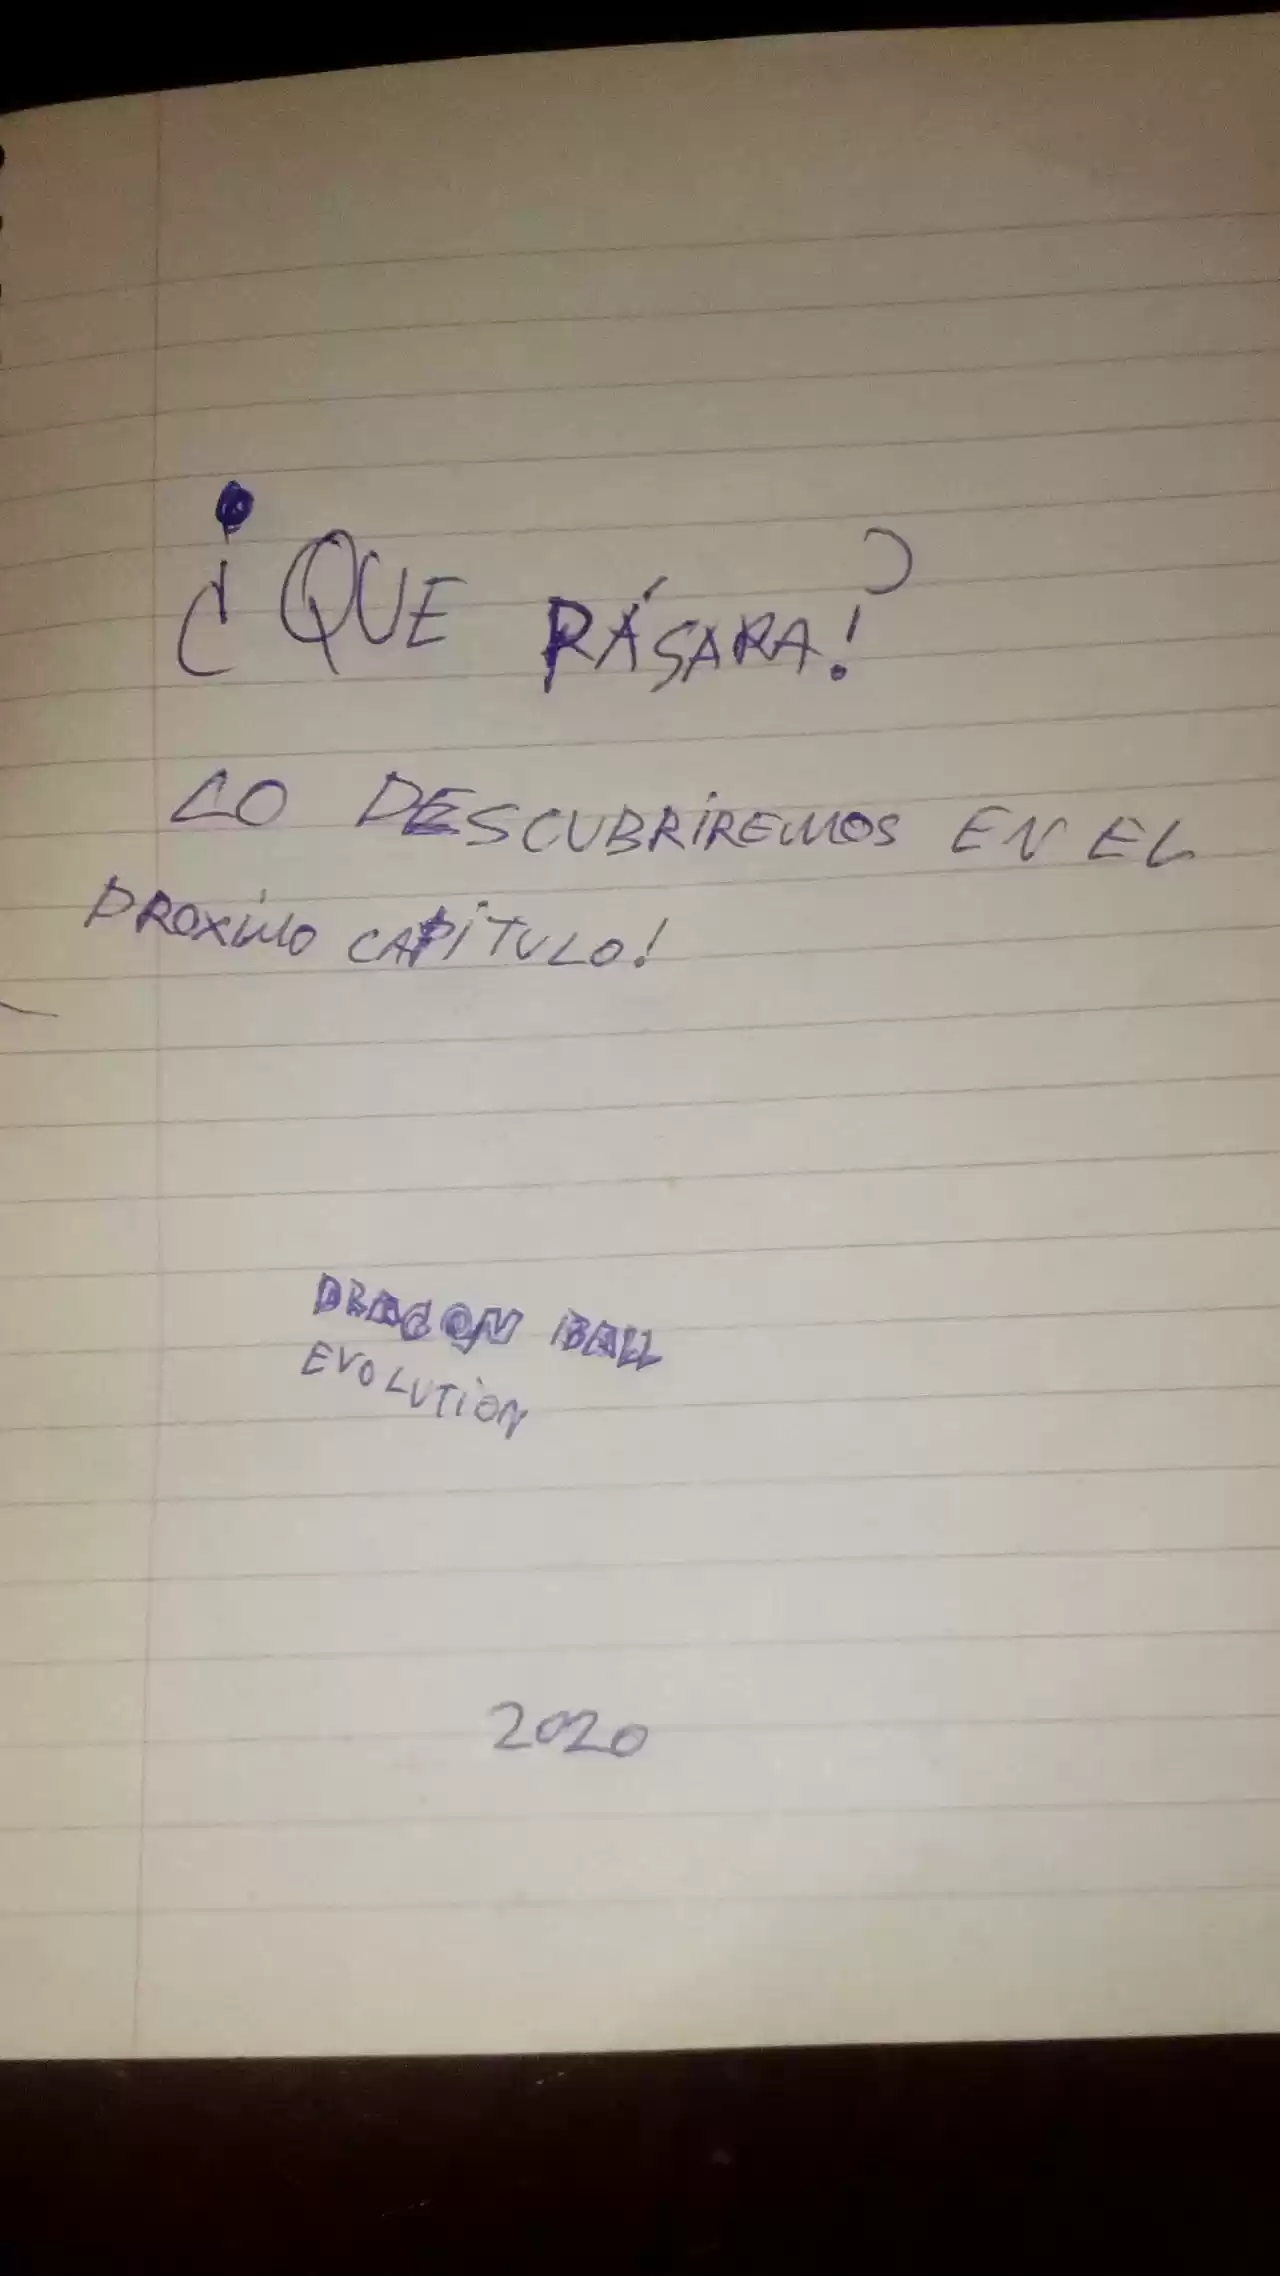 ¿¡QUE PÁSARA!?
LO DESCUBRIREMOS EN EL
PROXIMO CAPITULO!
DRAGON BALL
EVOLUTION
2020